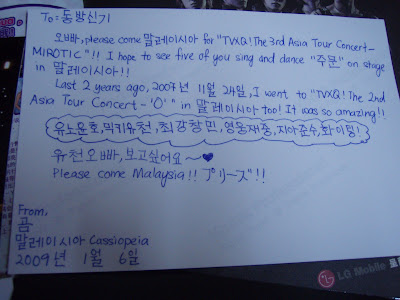 To: 동방신기
오빠, please come 말레이시아 for "TVXQ! The 3rd Asia Tour Concert-
MIROTIC"!! I hope to see five of you sing and dance "주문" on stage
in 말레이시아!!
Last 2 years ago, 2007년 11월 24일, I went to "TVXQ! The 2nd
Asia Tour Concert - 'O'" in 말레이시아 too! It was so amazing!!
유노윤호, 믹키유천, 최강창민, 영웅재중, 시아준수, 화이팅!
유천오빠, 보고싶어요~♥
Please come Malaysia!! プリーズ!!
From,
곰
말레이시아 Cassiopeia
2009年 1월 6일
LG Mobile